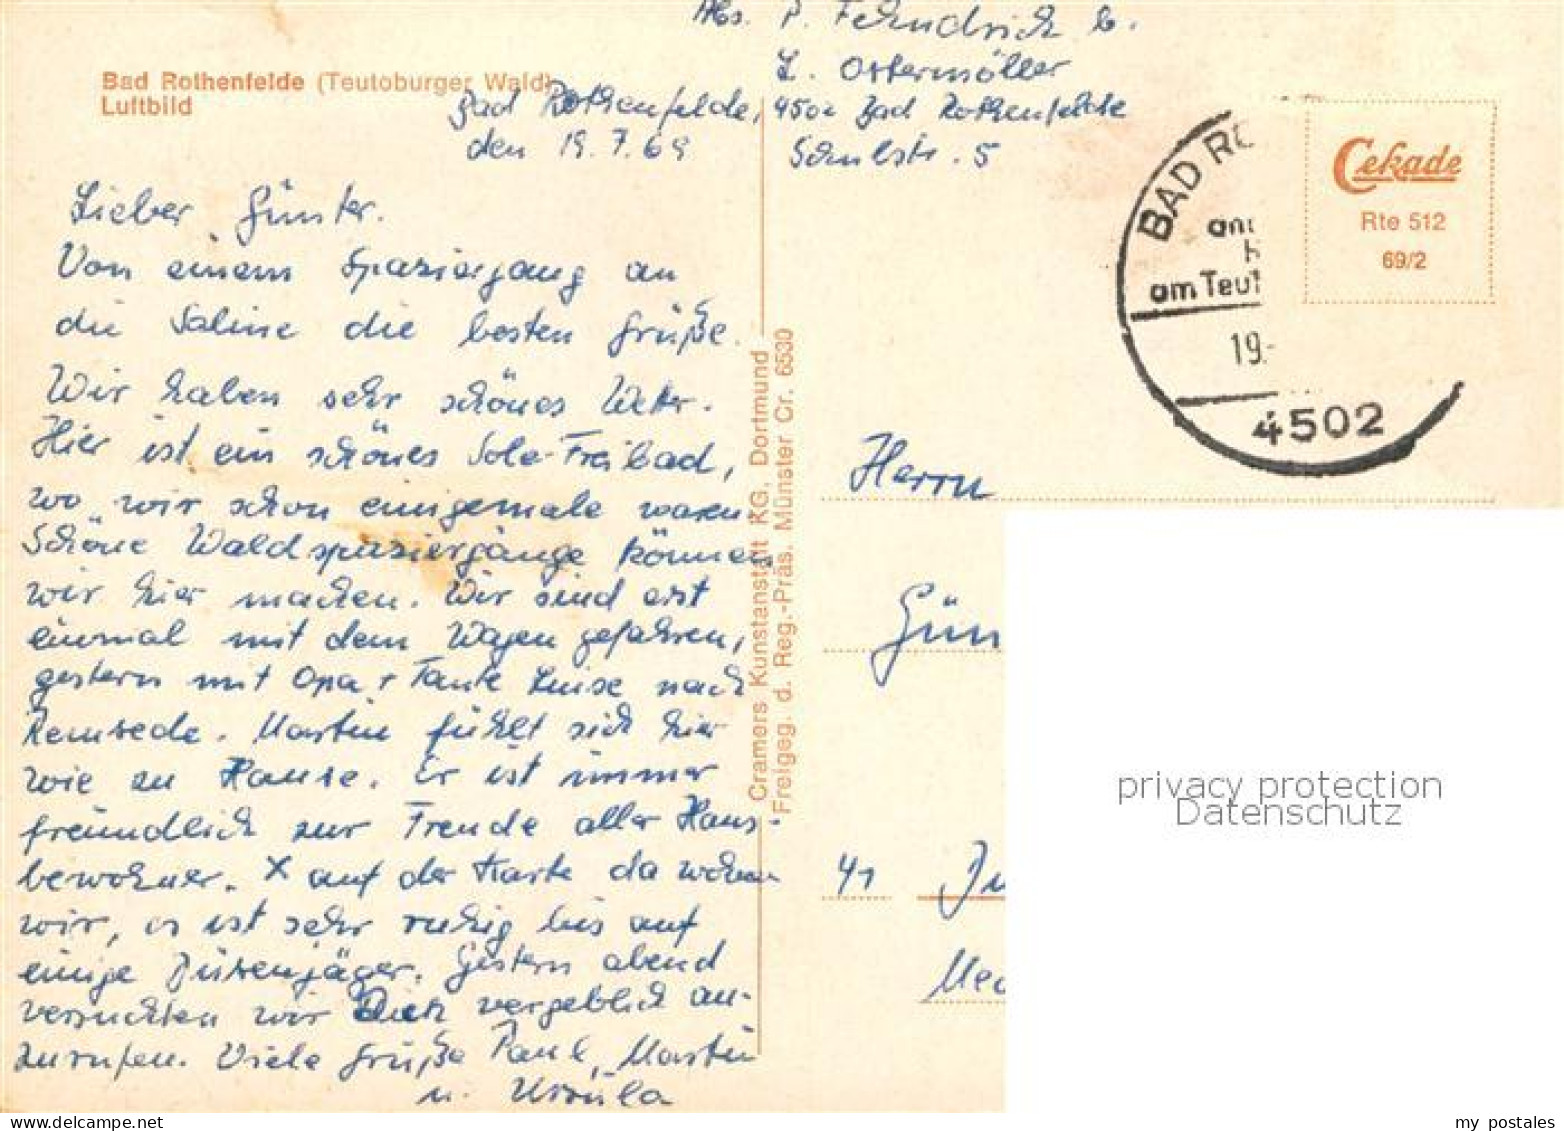 Bad Rothenfelde (Teutoburger Wald)
Luftbild
Abs. P. Fehndrich b.
L. Ostermöller
4502 Bad Rothenfelde
Schulstr. 5
Bad Rothenfelde,
den 19.7.69
Lieber Günter.
Von einem Spaziergang an
die Saline die besten Grüße.
Wir haben sehr schönes Wetter.
Hier ist ein schönes Sole-Freibad,
wo wir schon einigemale waren
Schöne Waldspaziergänge können
wir hier machen. Wir sind erst
einmal mit dem Wagen gefahren,
gestern mit Opa + Tante Luise nach
Remsede. Martin fühlt sich hier
wie zu Hause. Er ist immer
freundlich zur Freude aller Haus-
bewohner. X auf der Karte da wohnen
wir, es ist sehr ruhig bis auf
einige Düsenjäger. Gestern abend
versuchten wir Dich vergeblich an-
zurufen. Viele Grüße Paul, Martin
u. Ursula
Cramers Kunstanstalt KG, Dortmund
Freigeg. d. Reg.-Präs. Münster Cr. 6530
BAD RO
am Teut
19.-
4502
Cekade
Rte 512
69/2
Herrn
Gün
41 Du
privacy protection
Datenschutz
my postales
delcampe.net